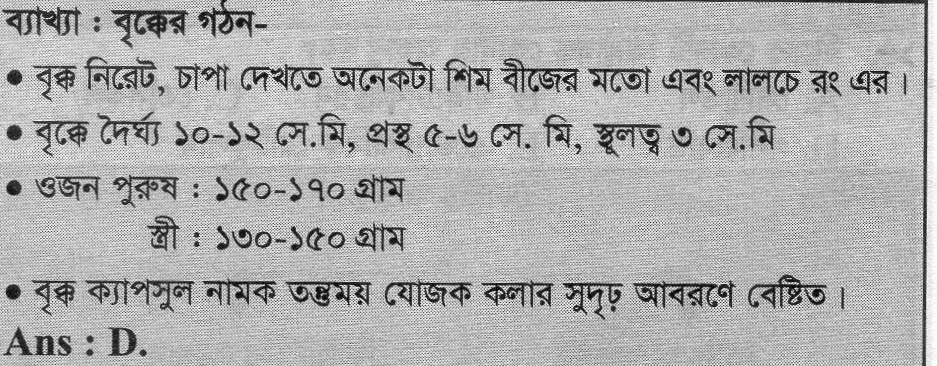 ব্যাখ্যা : বৃক্কের গঠন-
● বৃক্ক নিরেট, চাপা দেখতে অনেকটা শিম বীজের মতো এবং লালচে রং এর।
● বৃক্কে দৈর্ঘ্য ১০-১২ সে.মি, প্রস্থ ৫-৬ সে. মি, স্থূলত্ব ৩ সে.মি
● ওজন পুরুষ : ১৫০-১৭০ গ্রাম
স্ত্রী : ১৩০-১৫০ গ্রাম
● বৃক্ক ক্যাপসুল নামক তন্তুময় যোজক কলার সুদৃঢ় আবরণে বেষ্টিত।
Ans : D.